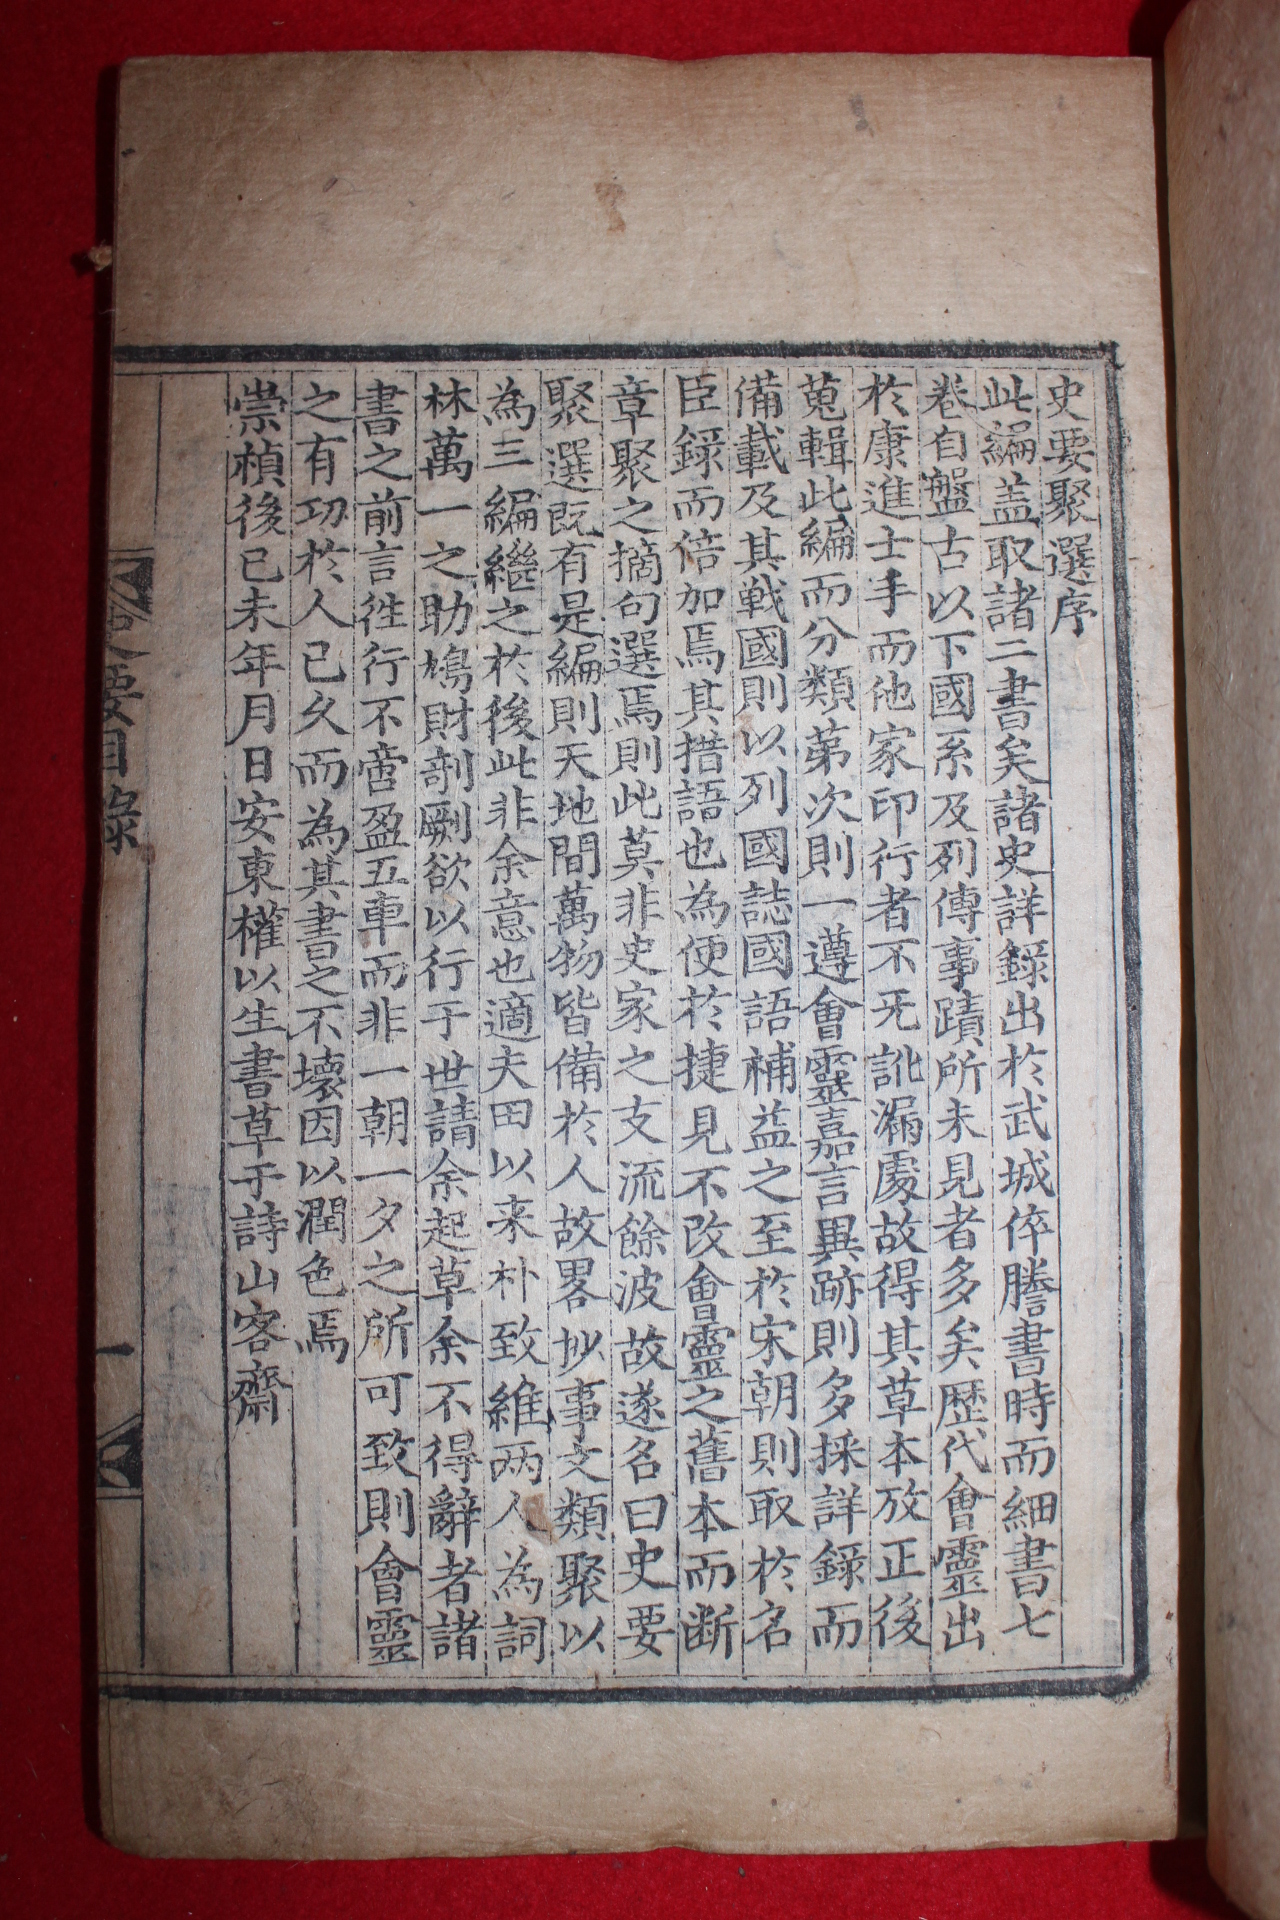 史要聚選序
此編盖取諸二書矣諸史詳錄出於武城倅謄書時而細書七
卷自盤古以下國系及列傳事蹟所未見者多矣歷代會靈出
於康進士手而他家印行者不旡訛漏處故得其草本放正後
蒐輯此編而分類苐次則一遵會靈嘉言異跡則多採詳錄而
備載及其戰國則以列國誌國語補益之至於宋朝則取於名
臣錄而倍加焉其措語也為便於捷見不改會靈之舊本而断
章聚之摘句選焉則此莫非史家之支流餘波故遂名曰史要
聚選既有是編則天地間萬物皆備於人故畧抄事文類聚以
為三編繼之於後此非余意也適夫田以来朴致維两人為詞
林萬一之助鳩財剞劂欲以行于世請余起草余不得辭者諸
書之前言徃行不啻盈五車而非一朝一夕之所可致則會靈
之有功於人已久而為其書之不壞因以潤色焉
崇楨後已未年月日安東權以生書草于詩山客齋
史要目錄
一